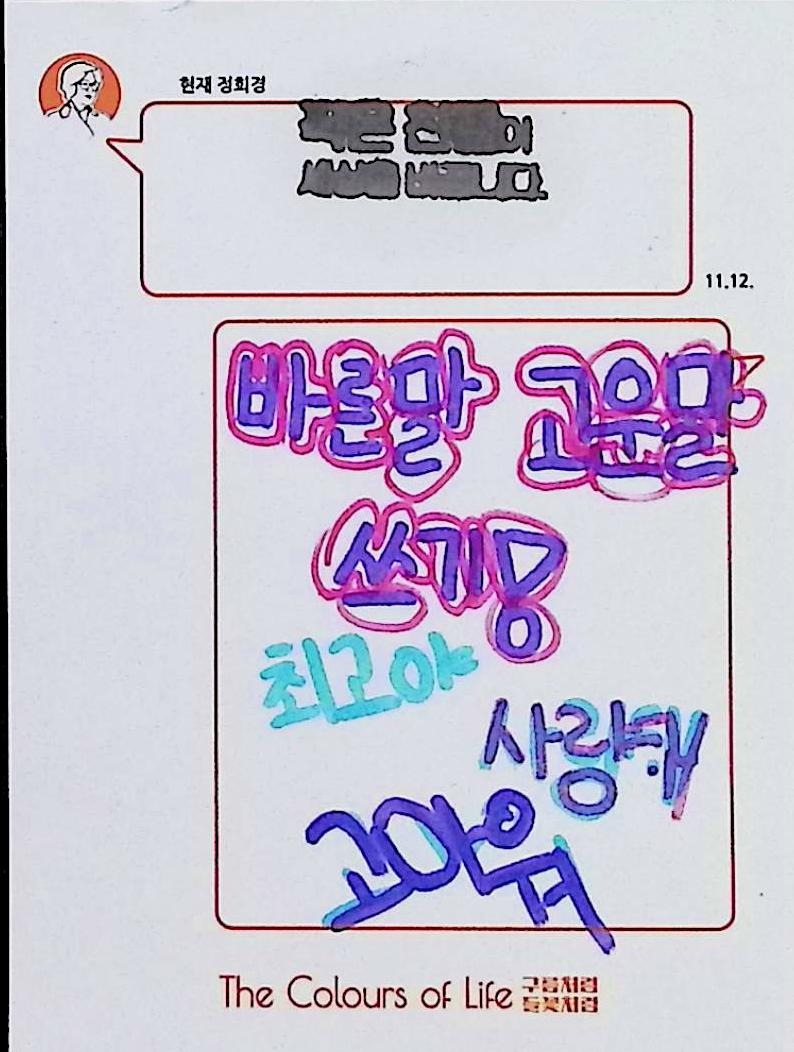 현재 정희경
11.12.
바른말 고운말
쓰기
최고야
사랑해
고마워
The Colours of Life 구름처럼
들꽃처럼